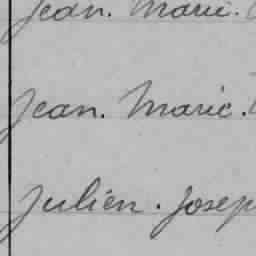 Jean. Marie.
Jean. Marie.
Julien. Josep